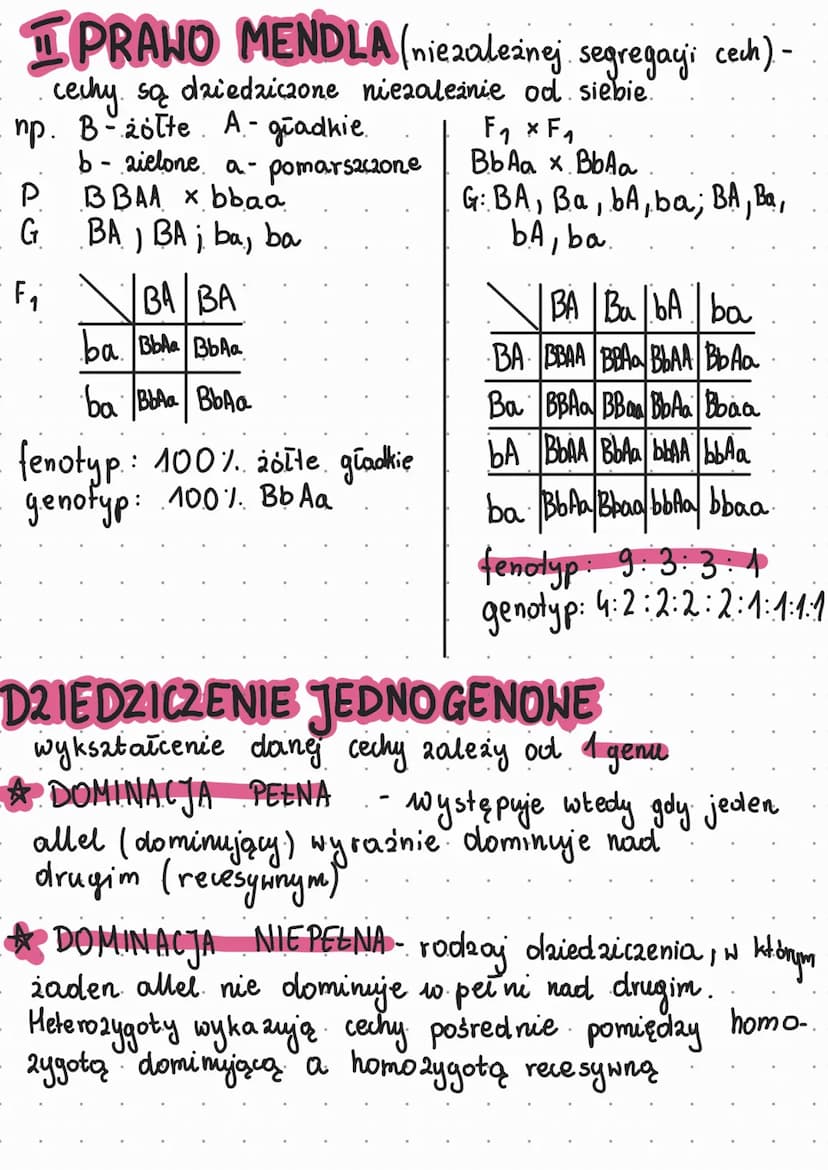 II PRAWO MENDLA (niezależnej segregacji cech) -
cechy są dziedziczone niezależnie od siebie
np. B - żółte A - gładkie
b - zielone a - pomarszczone
P BBAA × bbaa
G BA, BA; ba, ba
F1
BA BA
ba BbAa BbAa
ba BbAa BbAa
fenotyp: 100% żółte gładkie
genotyp: 100% BbAa
F1 × F1
BbAa × BbAa
G: BA, Ba, bA, ba; BA, Ba,
bA, ba
BA Ba bA ba
BA BBAA BBAa BbAA BbAa
Ba BBAa BBaa BbAa Bbaa
bA BbAA BbAa bbAA bbAa
ba BbAa Bbaa bbAa bbaa
fenotyp: 9:3:3:1
genotyp: 4:2:2:2:2:1:1:1:1
DZIEDZICZENIE JEDNOGENOWE
wykształcenie danej cechy zależy od 1 genu
☆ DOMINACJA PEŁNA - występuje wtedy gdy jeden
allel (dominujący) wyraźnie dominuje nad
drugim (recesywnym)
☆ DOMINACJA NIEPEŁNA - rodzaj dziedziczenia, w którym
żaden allel nie dominuje w pełni nad drugim.
Heterozygoty wykazują cechy pośrednie pomiędzy homo-
zygotą dominującą a homozygotą recesywną